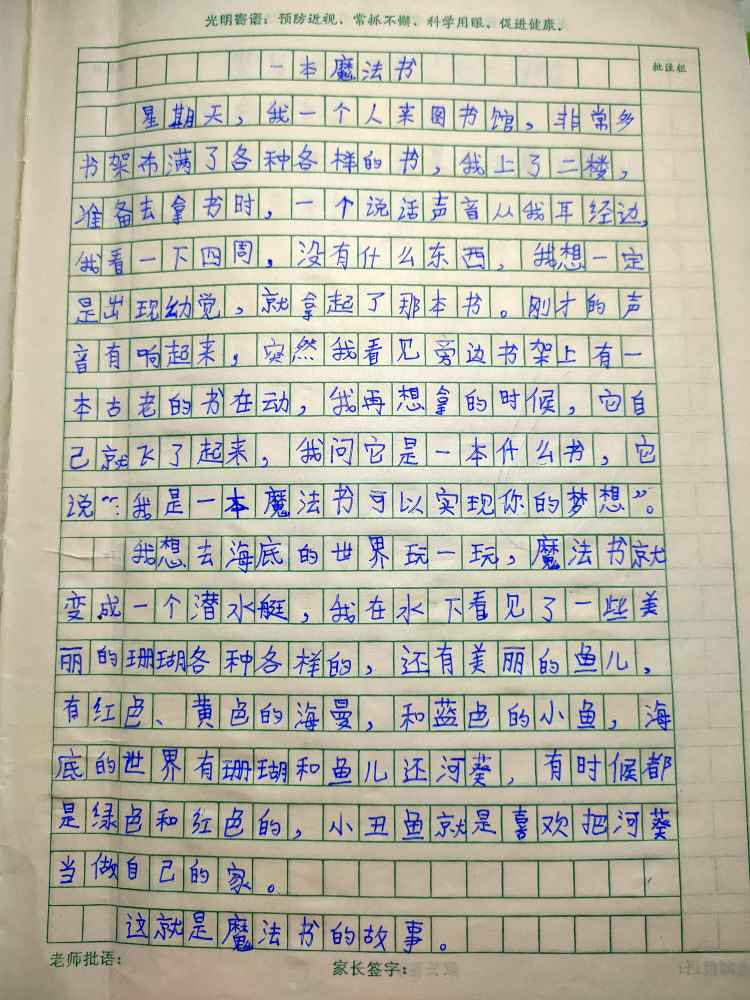 光明寄语：预防近视、常抓不懈、科学用眼、促进健康.
一本魔法书
批注栏
星期天，我一个人来图书馆，非常多
书架布满了各种各样的书，我上了二楼，
准备去拿书时，一个说话声音从我耳经边，
我看一下四周，没有什么东西，我想一定
是出现幼觉，就拿起了那本书。刚才的声
音有响起来，突然我看见旁边书架上有一
本古老的书在动，我再想拿的时候，它自
己就飞了起来，我问它是一本什么书，它
说“：我是一本魔法书可以实现你的梦想”。
我想去海底的世界玩一玩，魔法书就
变成一个潜水艇，我在水下看见了一些美
丽的珊瑚各种各样的，还有美丽的鱼儿，
有红色、黄色的海曼，和蓝色的小鱼，海
底的世界有珊瑚和鱼儿还河葵，有时候都
是绿色和红色的，小丑鱼就是喜欢把河葵
当做自己的家。
这就是魔法书的故事。
老师批语：
家长签字：